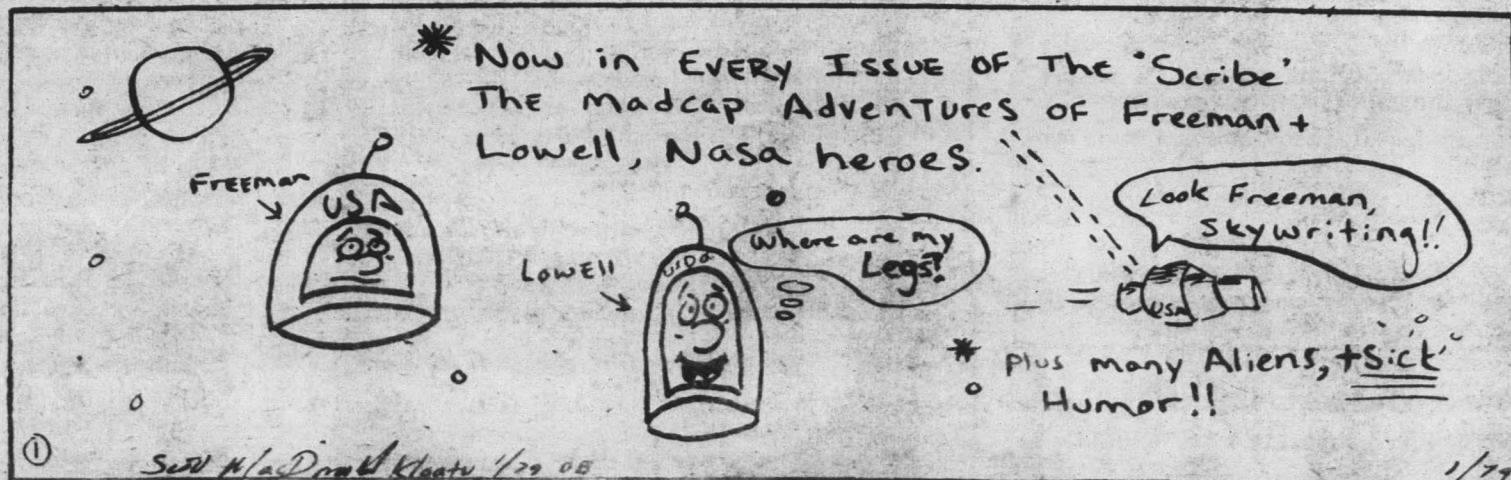 * Now in EVERY ISSUE OF THE 'Scribe'
THE madcap Adventures of Freeman +
Lowell, Nasa heroes.
FREEMAN
USA
LOWELL
USDA
Where are my
Legs?
Look Freeman,
Skywriting!!
USA
* Plus many Aliens, + Sick
Humor!!
①
MacDonald Klaatu 1/79
1/79